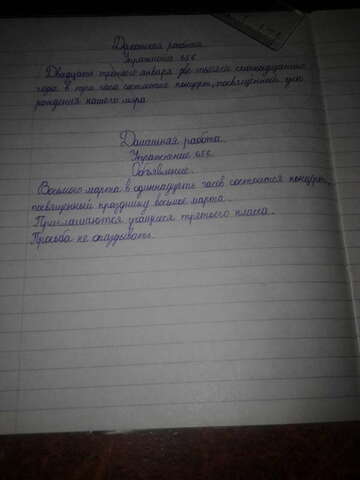 Домашняя работа.
Упражнение 656.
Двадцать третьего января две тысячи семнадцатого
года в три часа состоится концерт, посвященный дню
рождения нашего мэра.
Домашняя работа.
Упражнение 656.
Объявление.
Восьмого марта в одиннадцать часов состоится концерт,
посвященный празднику восьмое марта.
Приглашаются учащиеся третьего класса.
Просьба не опаздывать.